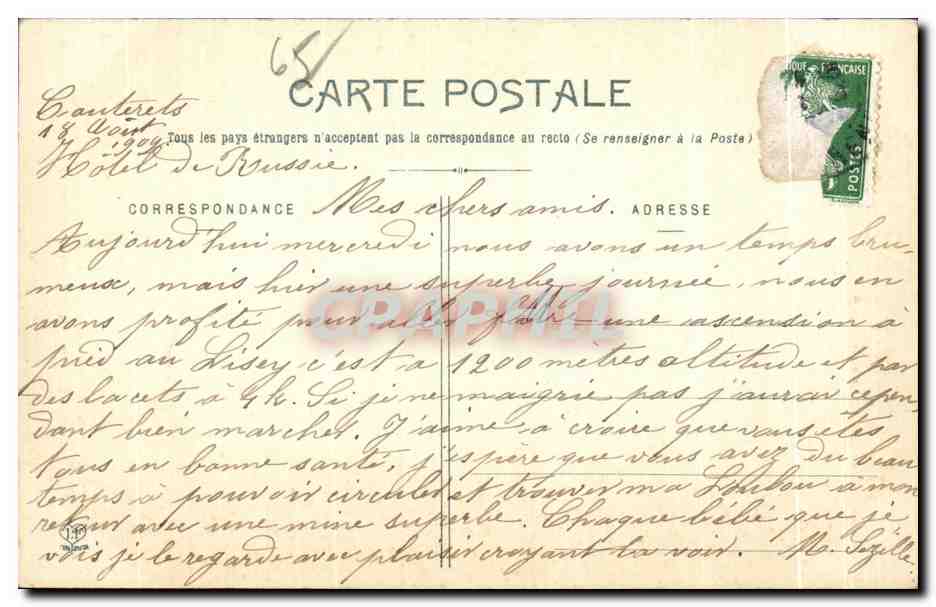 65
CARTE POSTALE
Cauterets
18 Août
1909
Tous les pays étrangers n'acceptent pas la correspondance au recto (Se renseigner à la Poste)
Hôtel de Russie.
CORRESPONDANCE Mes chers amis. ADRESSE
Aujourd'hui mercredi nous avons un temps bru-
meux, mais hier une superbe journée, nous en
avons profité pour aller faire une ascension à
pied au Lisey c'est à 1200 mètres altitude et par
des lacets à 4k. Si je ne maigrie pas j'aurai cepen-
dant bien marcher. J'aime à croire que vous êtes
tous en bonne santé, j'espère que vous avez du beau
temps à pouvoir circuler et trouver ma Loulou à mon
retour avec une mine superbe. Chaque bébé que je
vois je le regarde avec plaisir croyant la voir. M. Sézille
QUE FRANÇAISE
POSTES
5
CPAPHIL